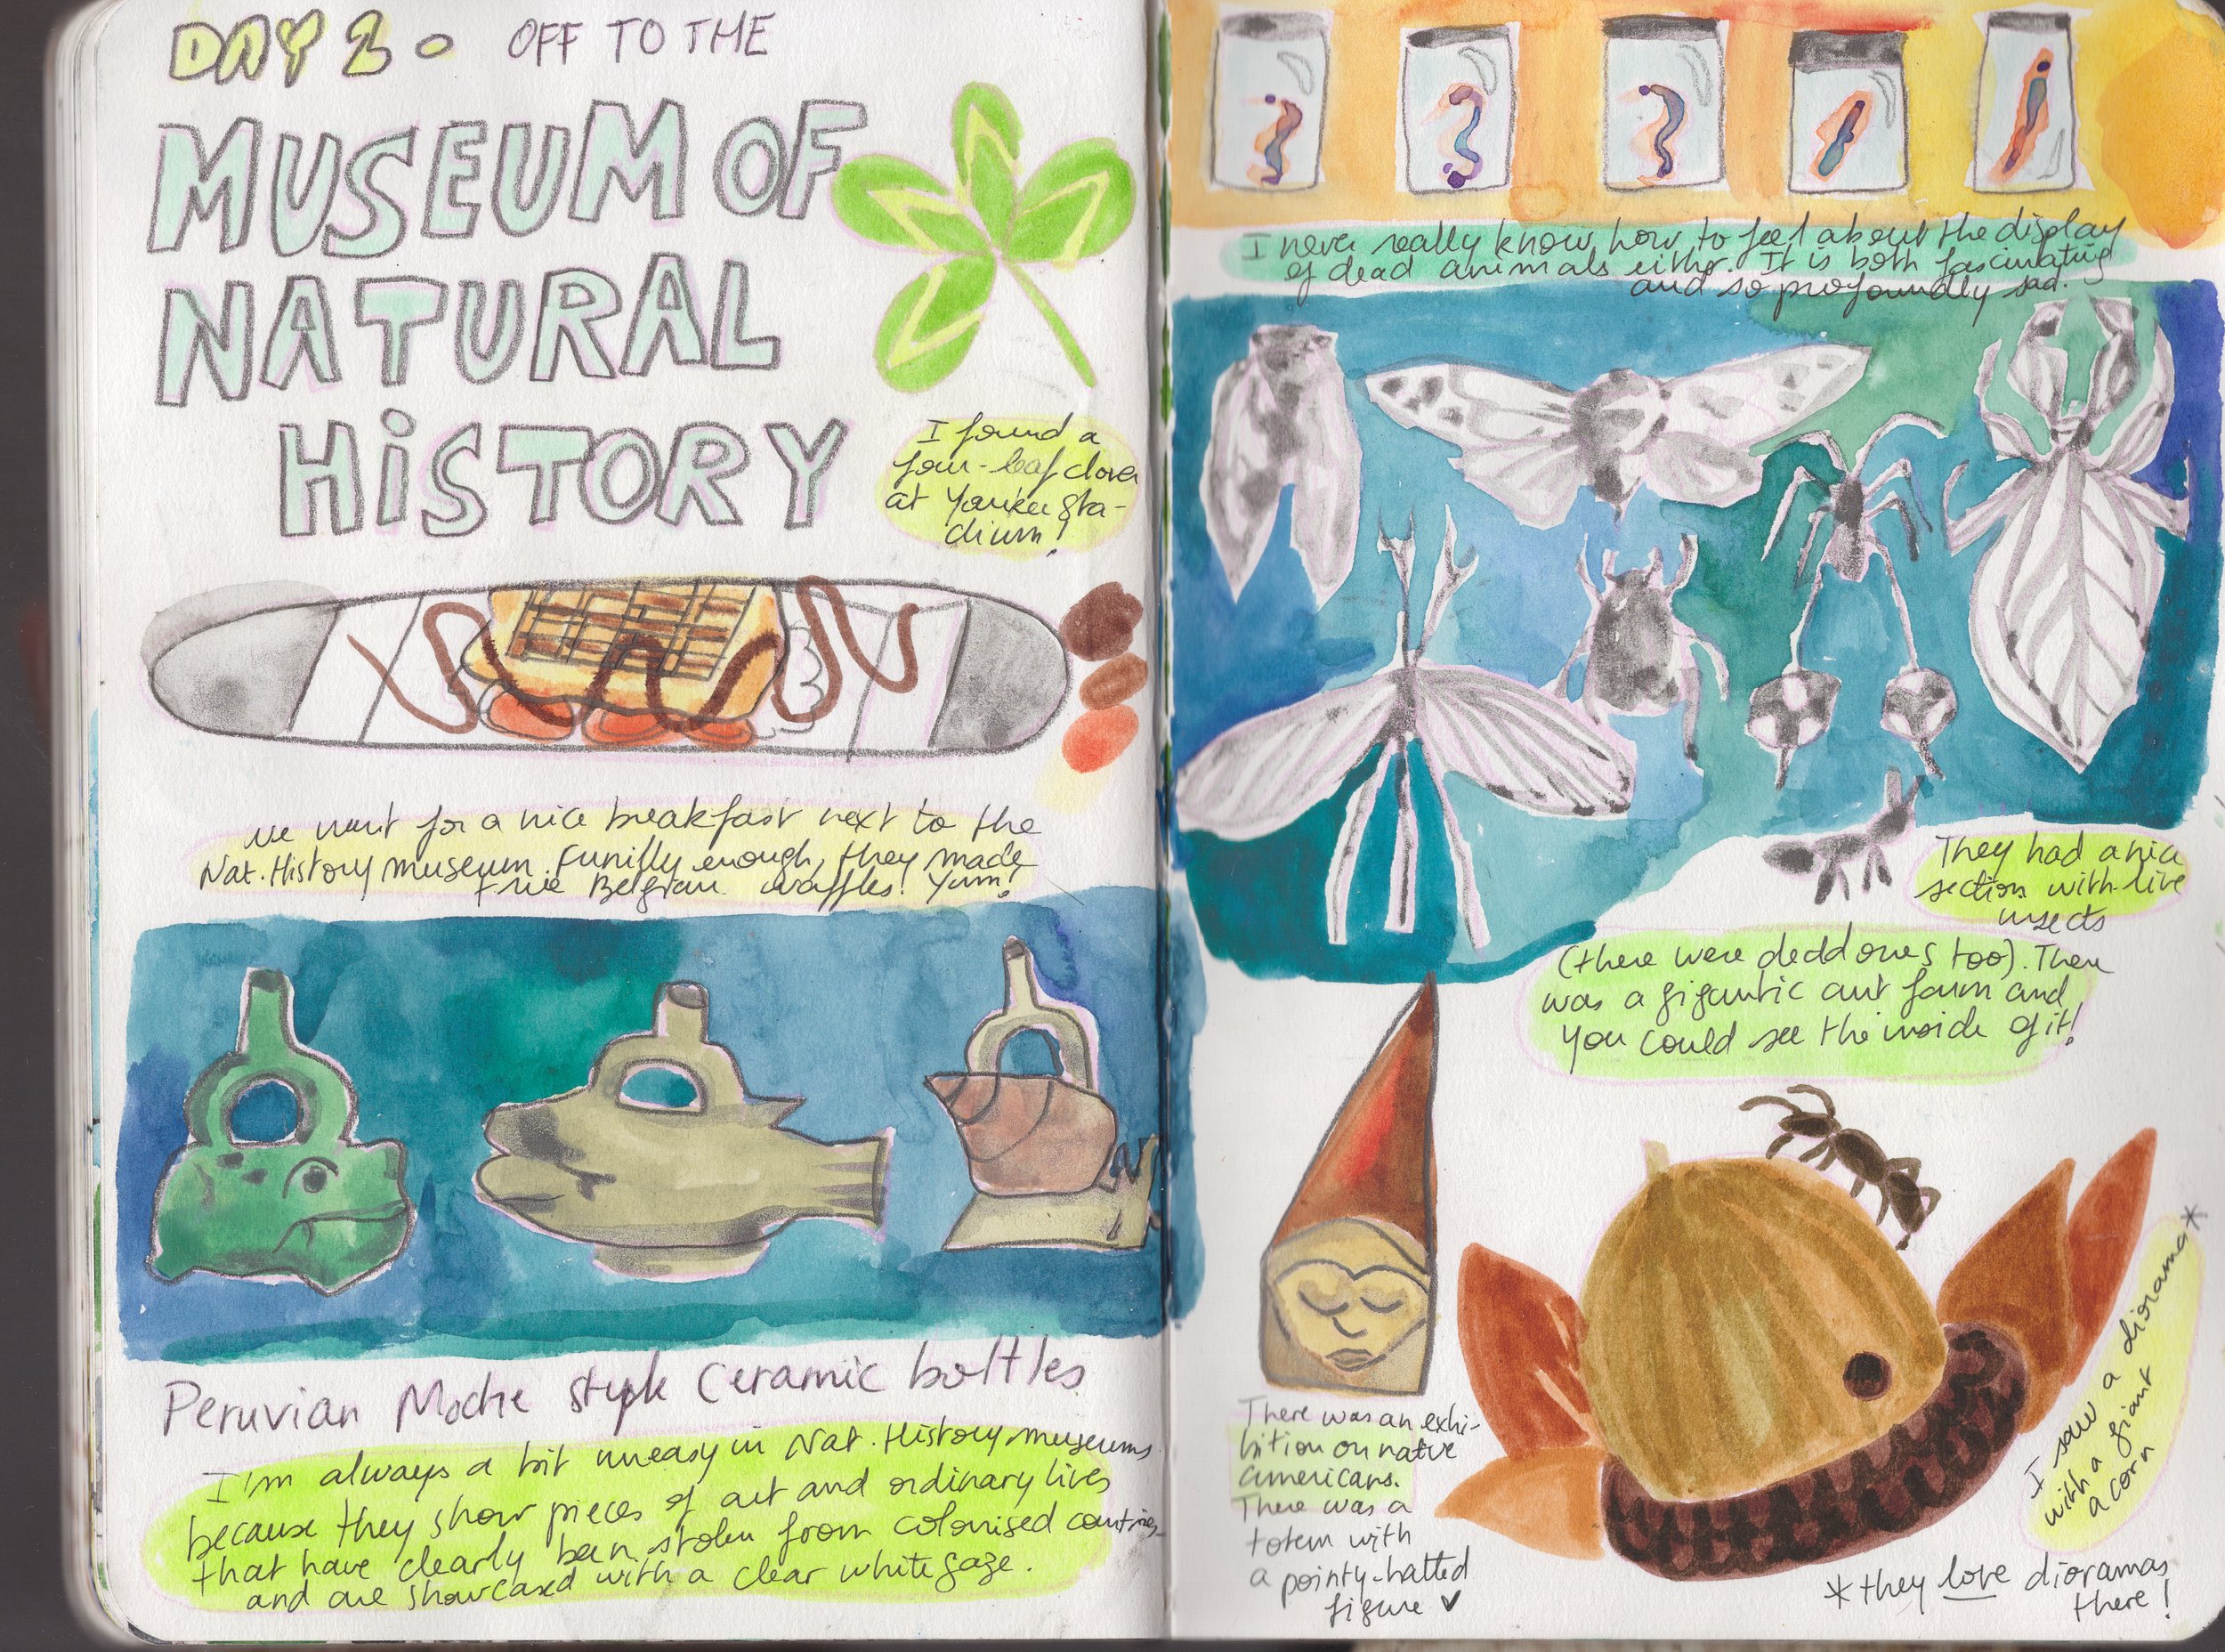 DAY 2 o OFF TO THE
MUSEUM OF
NATURAL
HISTORY
I found a
four-leaf clover
at Yankee Sta-
dium!
we went for a nice breakfast next to the
Nat. History museum. Funilly enough, they made
true Belgian waffles! Yum!
Peruvian Moche style ceramic bottles
I'm always a bit uneasy in Nat. History museums
because they show pieces of art and ordinary lives
that have clearly been stolen from colonised countries
and are showcased with a clear white gaze.
I never really know how to feel about the display
of dead animals either. It is both fascinating
and so profoundly sad.
They had a nice
section with live
insects
(there were dead ones too). There
was a gigantic ant farm and
you could see the inside of it!
There was an exhi-
bition on native
americans.
There was a
totem with
a pointy-hatted
figure ♥
I saw a diorama*
with a giant
acorn
*they love dioramas
there!